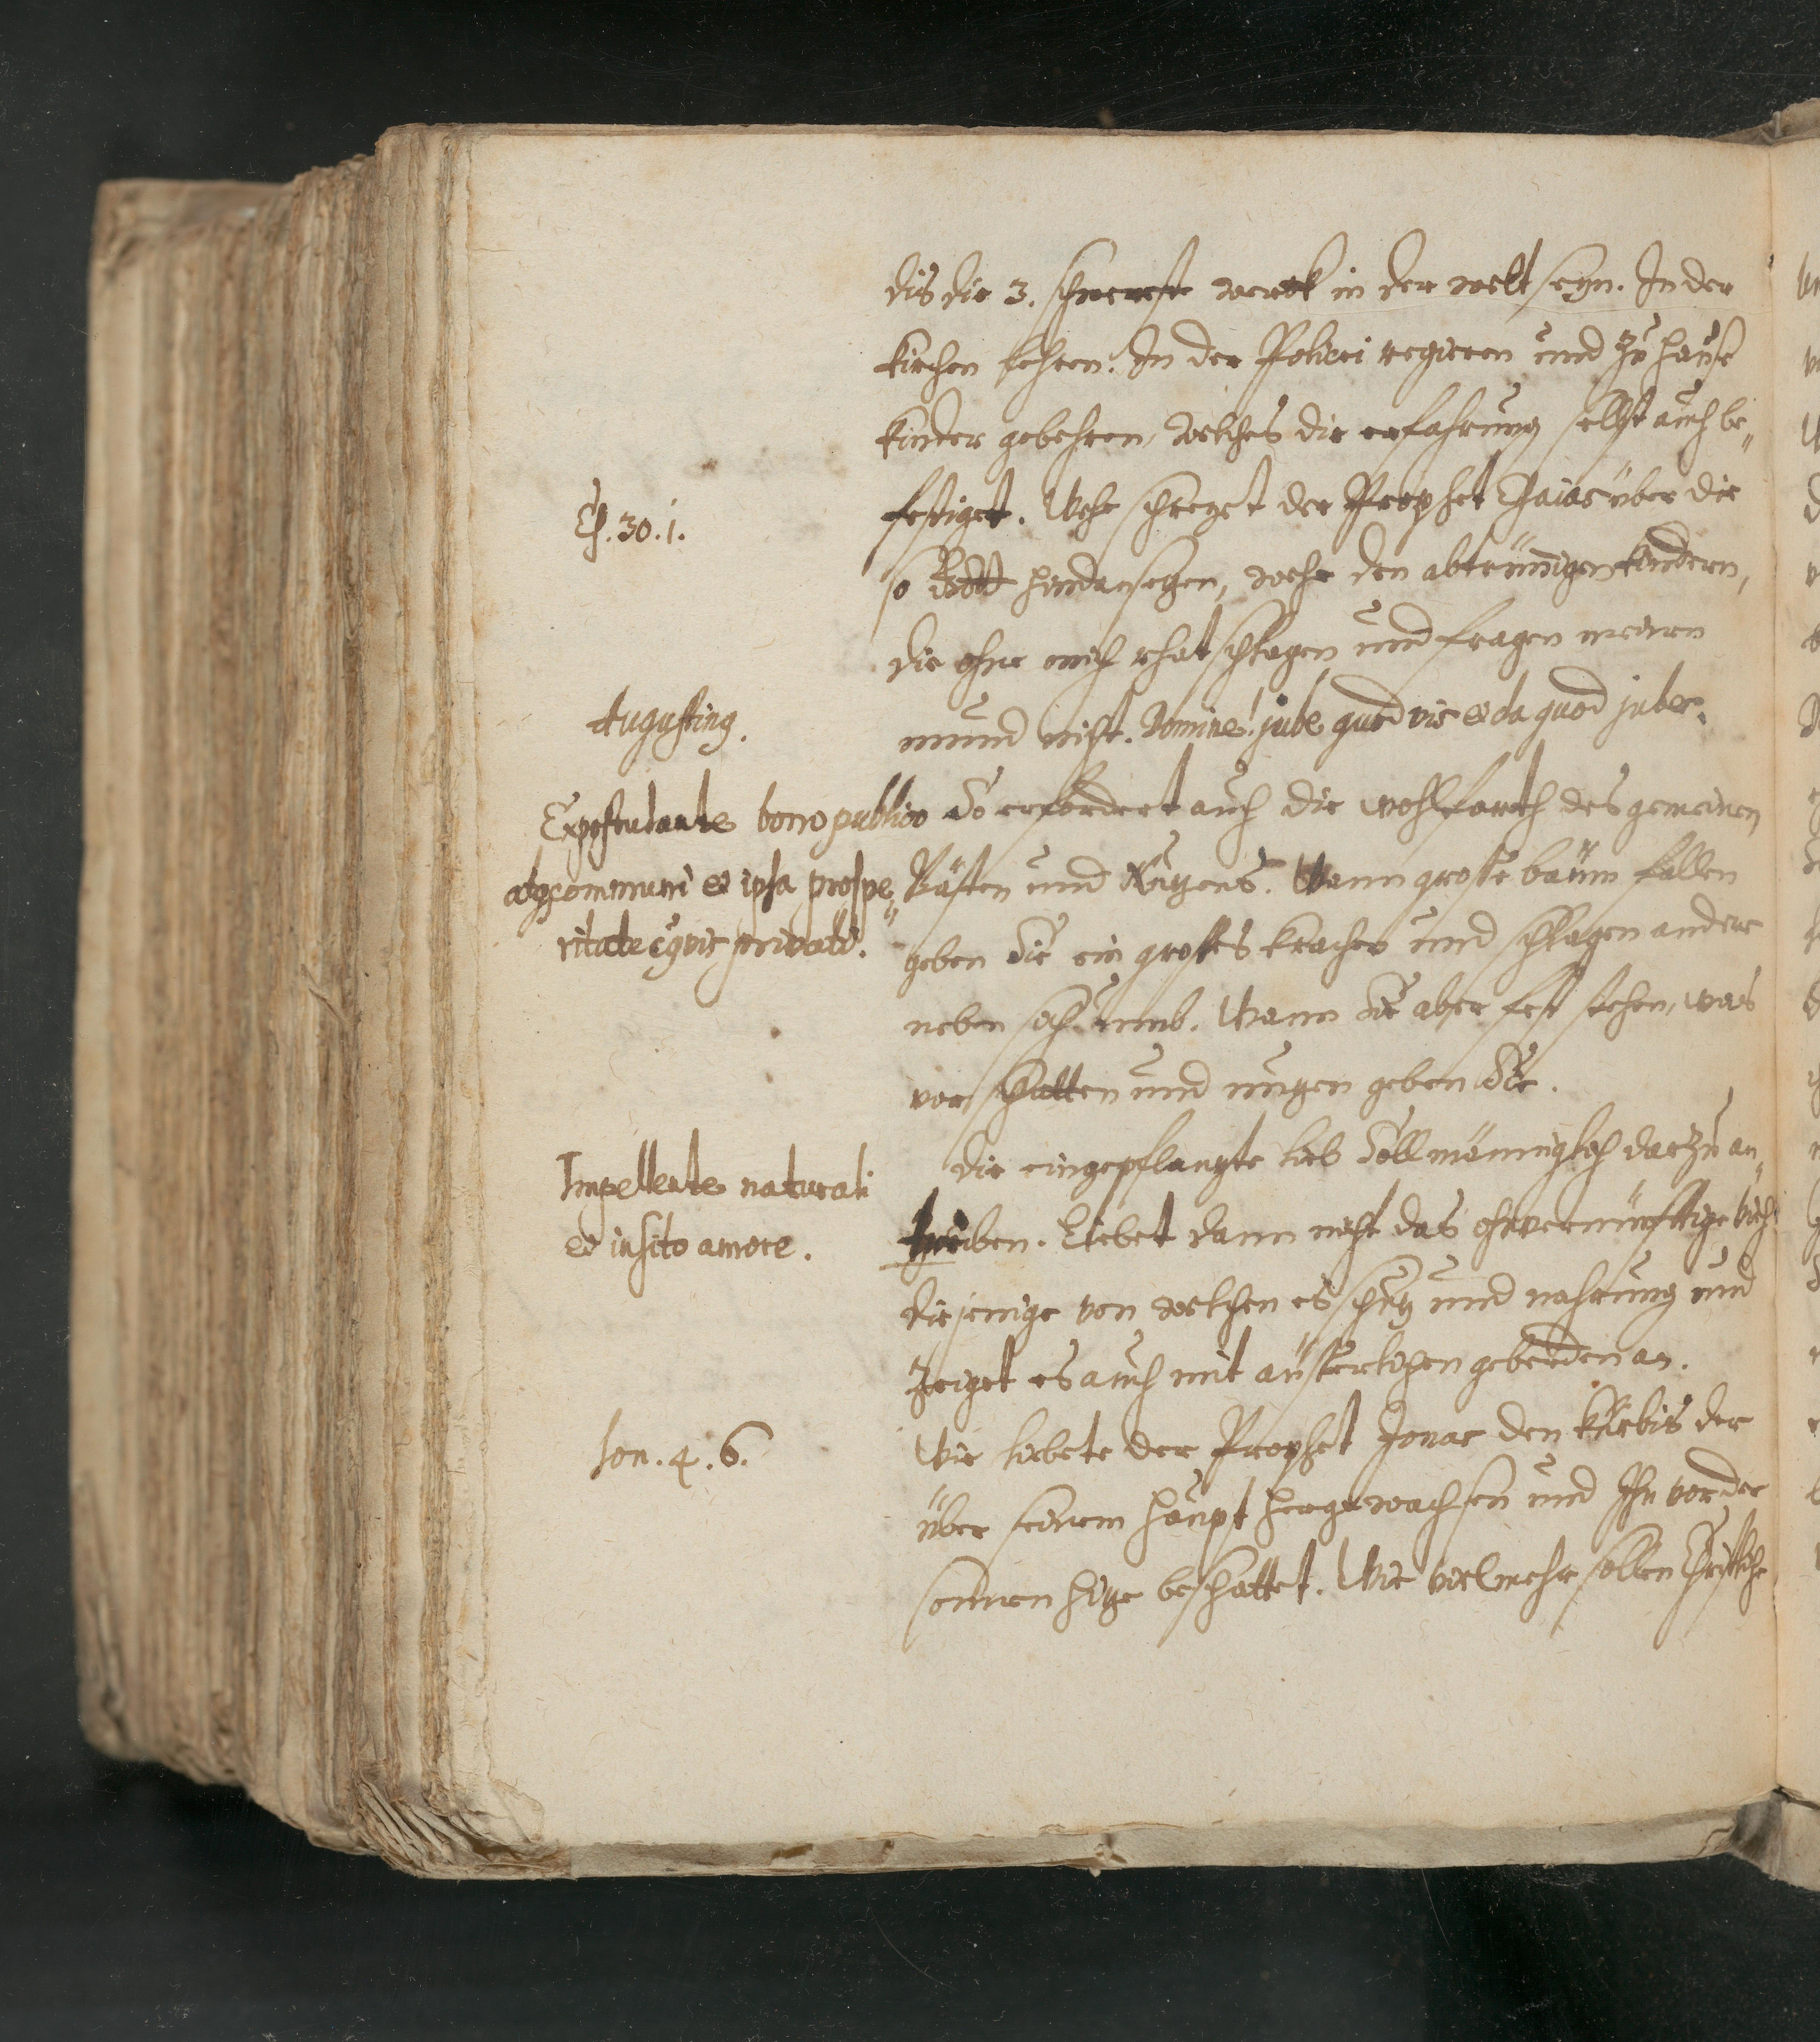 dis die 3. schwerste werck in der welt seyn. In der
kirchen lehren. In der Policei regieren und zu hause
kinder gebehren, welches die erfahrung selbst auch be„
Es. 30. 1.
festiget. Wehe schreyet der Prophet Esaias über die
so Gott hindansezen, wehe den abtrünnigen kindern,
die ohne mich rhatschlagen und fragen meinen
Augustinꝰ.
mund nicht. Domine! jube quod vis et da quod jubes.
Expostulante bono publico
So erfordert auch die wohlfarth des gemeinen
atqꝫ communi et ipsa prospe„
Bästen und Nuzens. Wann grosse bäum fallen
ritate cujusvis privati.
geben Sie ein grosses krachen und schlagen andere
neben sich umb. Wann Sie aber fest stehen, was
vor schatten und nuzen geben Sie.
Impellente naturali
Die eingepflanzte lieb Soll männiglich darzu an„
et insito amore.
treiben. Liebet dann nicht das ohnvernünfftige vieh
diejenige von welchen es schutz und nahrung und
zeiget es auch mit äusserlichen geberden an.
Jon. 4. 6.
Wie liebete der Prophet Jonas den Kürbis der
über seinem haupt hergewachsen und Ihn vor der
sonnen hize beschattet. Wie viel mehr sollen Christliche